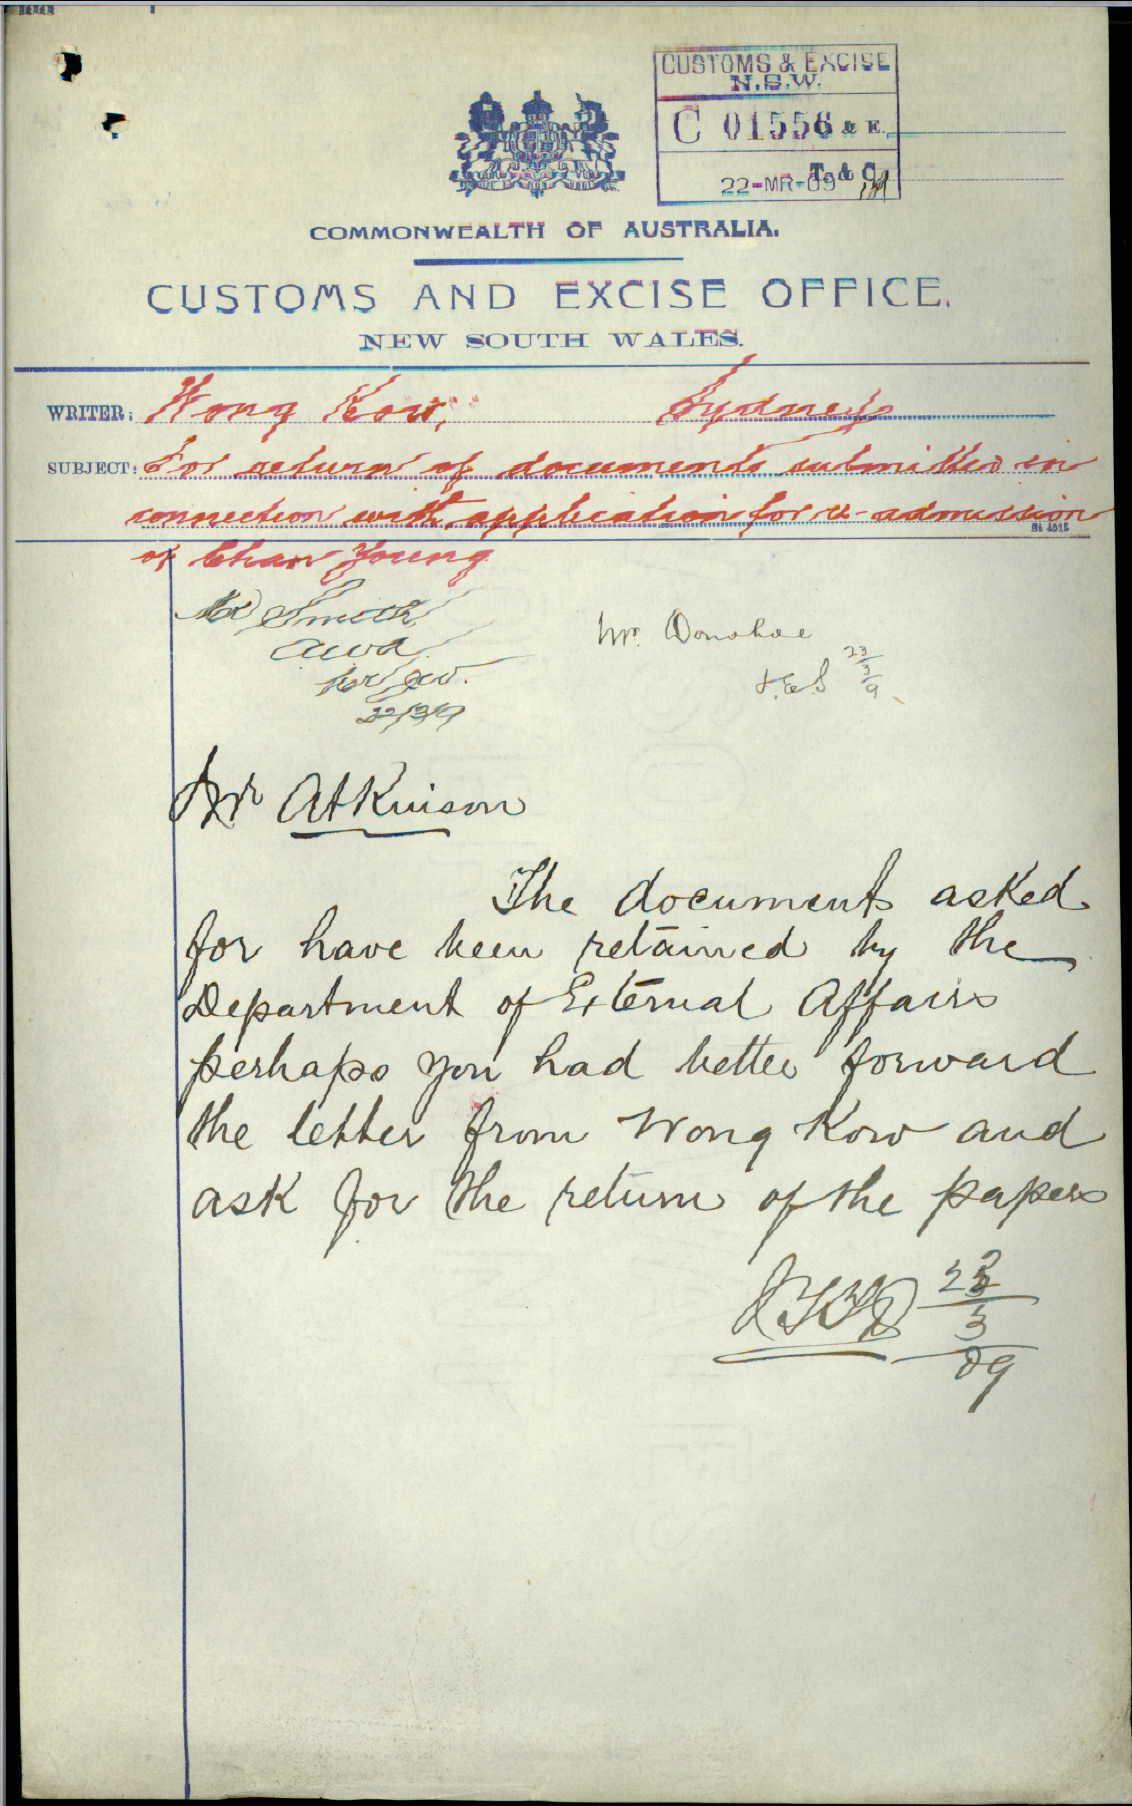 CUSTOMS & EXCISE
N.S.W.
C 01556 & E.
T. & C.
22-MR-09
COMMONWEALTH OF AUSTRALIA.
CUSTOMS AND EXCISE OFFICE.
NEW SOUTH WALES.
WRITER: Wong Kow, Sydney
SUBJECT: For return of documents submitted in
connection with application for re-admission
St 4015
of Chan Young
Mr Smith
22/3/9
Mr. Donohoe
23/3/9
Mr Atkinson
The documents asked
for have been retained by the
Department of External Affairs
perhaps you had better forward
the letter from Wong Kow and
ask for the return of the papers
3
09